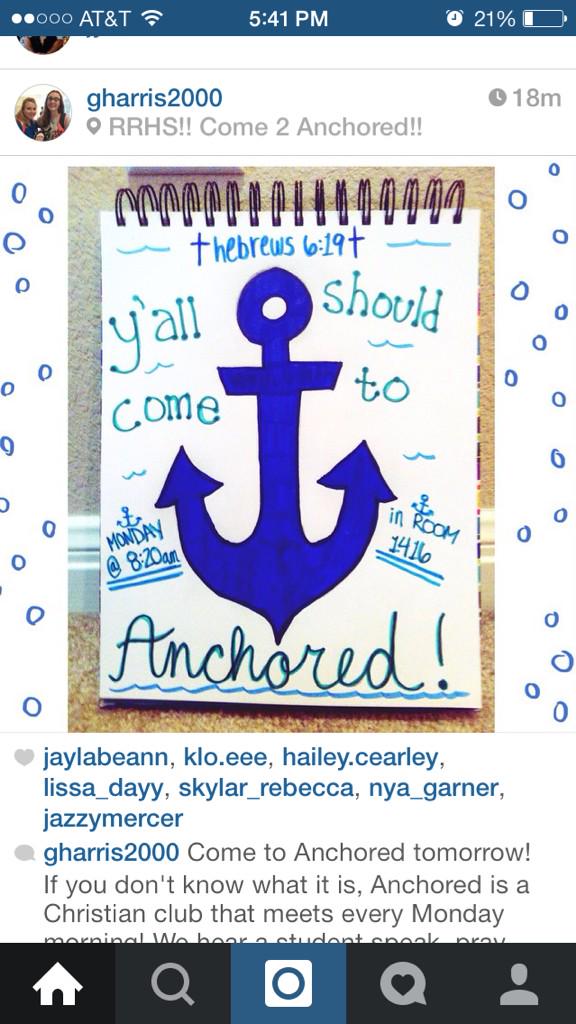 AT&T 5:41 PM 21%
gharris2000 18m
RRHS!! Come 2 Anchored!!
†hebrews 6:19†
y'all should
come to
MONDAY
@ 8:20am
in ROOM
1416
Anchored!
jaylabeann, klo.eee, hailey.cearley,
lissa_dayy, skylar_rebecca, nya_garner,
jazzymercer
gharris2000 Come to Anchored tomorrow!
If you don't know what it is, Anchored is a
Christian club that meets every Monday
morning! We hear a student speak, pray,